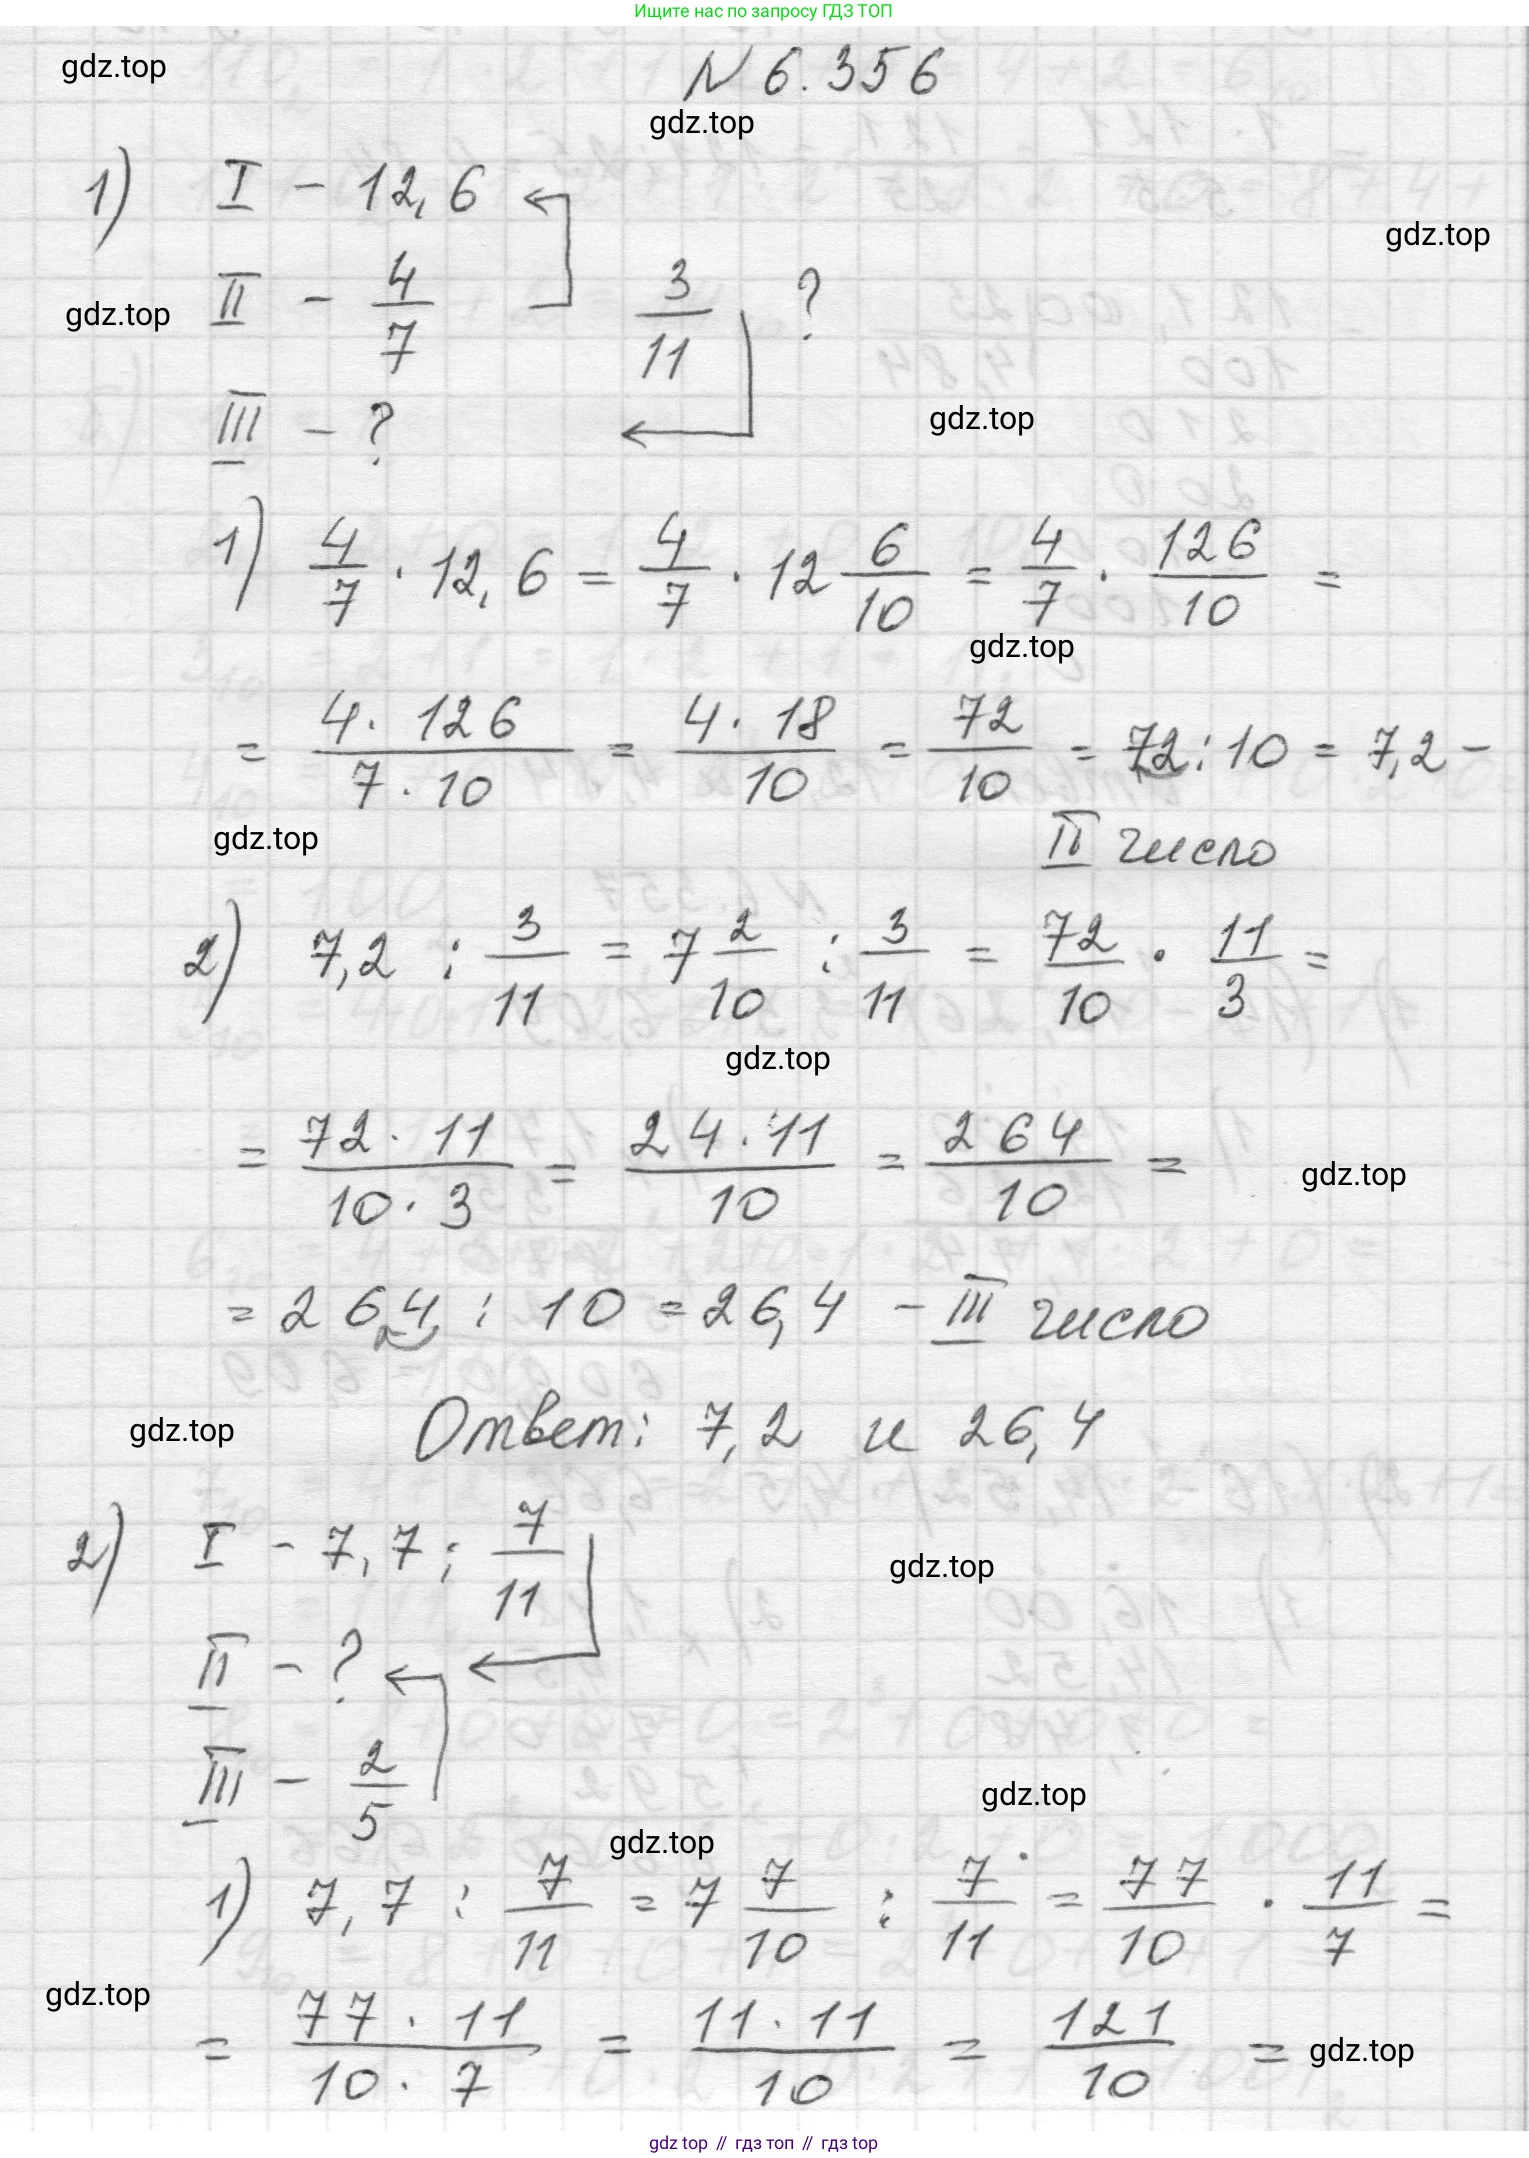 Ищите нас по запросу ГДЗ ТОП
N 6.356
gdz.top
gdz.top
1) I - 12,6
gdz.top
II - 4/7 3/11 ?
gdz.top
III - ?
gdz.top
1) 4/7 · 12,6 = 4/7 · 12 6/10 = 4/7 · 126/10 =
gdz.top
= 4 · 126 / 7 · 10 = 4 · 18 / 10 = 72/10 = 72 : 10 = 7,2 -
gdz.top
II число
2) 7,2 : 3/11 = 7 2/10 : 3/11 = 72/10 · 11/3 =
gdz.top
= 72 · 11 / 10 · 3 = 24 · 11 / 10 = 264/10 =
gdz.top
= 264 : 10 = 26,4 - III число
Ответ: 7,2 и 26,4
gdz.top
2) I - 7,7 ; 7/11
gdz.top
II - ?
III - 2/5
gdz.top
gdz.top
1) 7,7 : 7/11 = 7 7/10 : 7/11 = 77/10 · 11/7 =
gdz.top
= 77 · 11 / 10 · 7 = 11 · 11 / 10 = 121/10 =
gdz.top
gdz top // гдз топ // гдз top